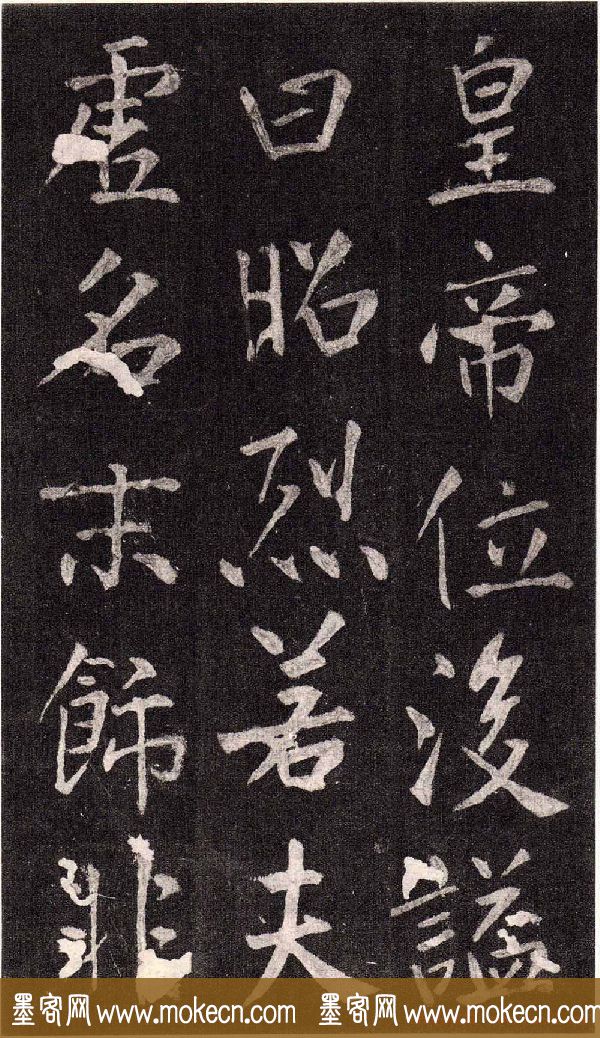 皇帝位後謚
曰昭烈若夫
虛名末飾非
墨客网 www.mokecn.com 墨客网 www.mokecn.com